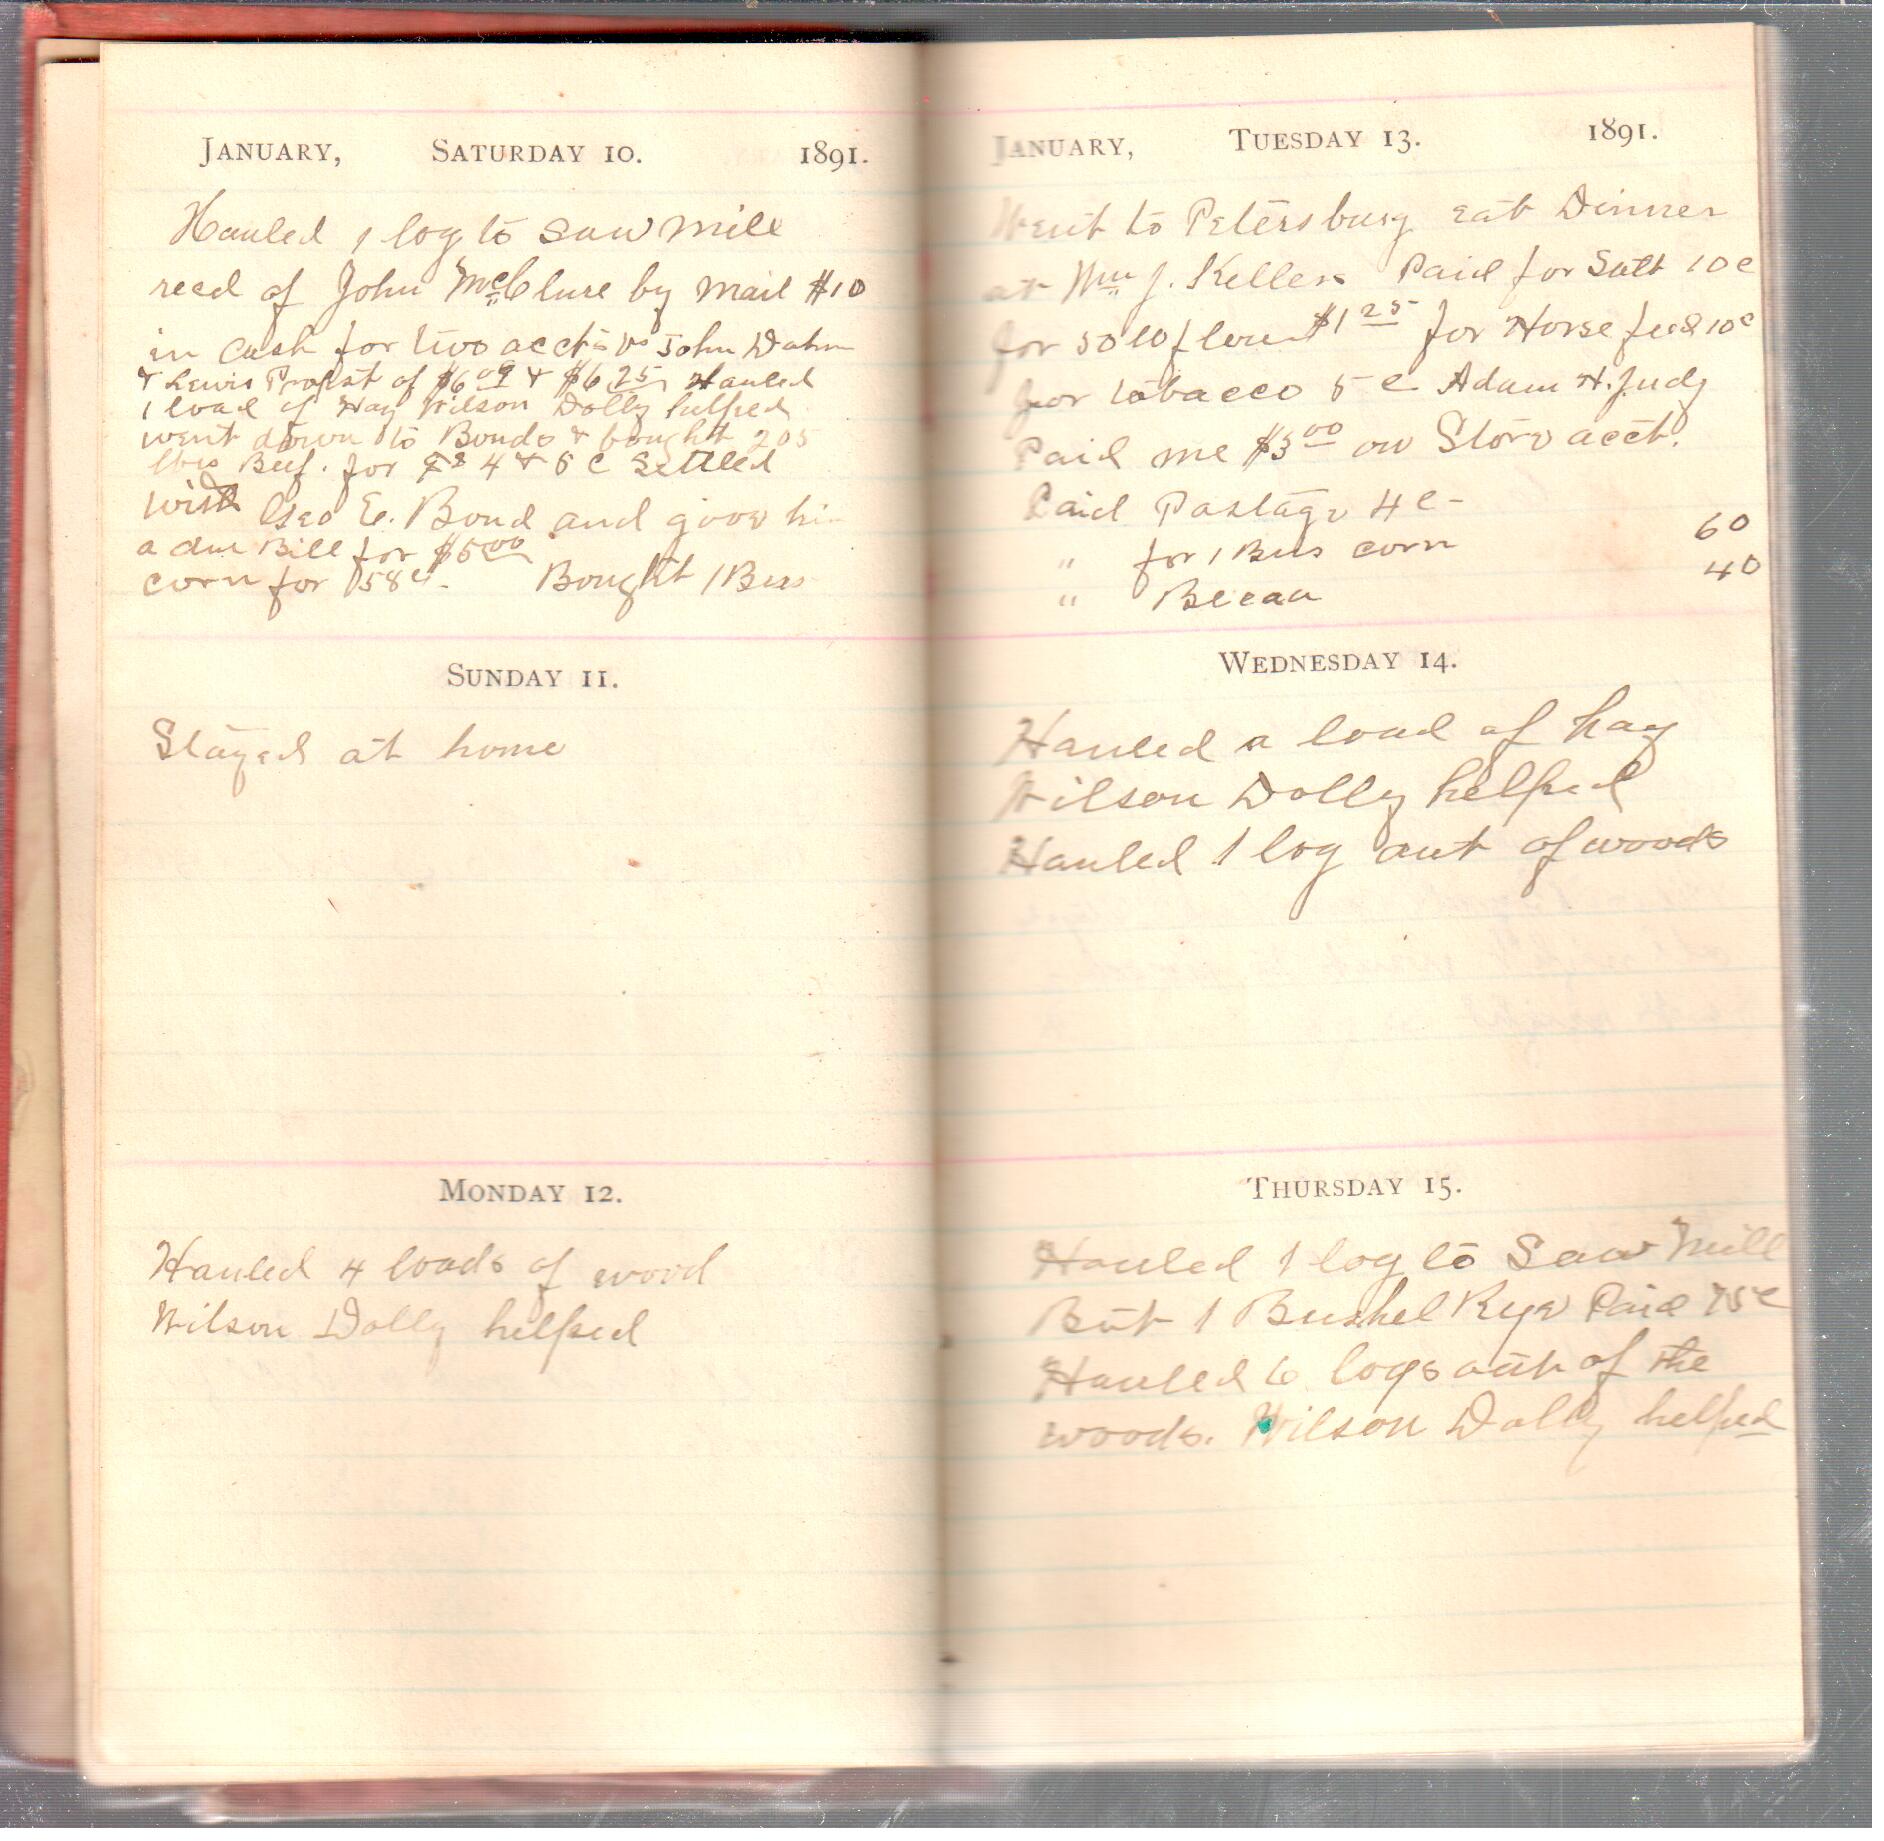 January, Saturday 10. 1891.
Hauled 1 log to Saw Mill
recd of John McClure by mail $10
in cash for two accts vs John Dahm
& Lewis Propst of $6 09 & $6 25 Hauled
1 load of Hay Wilson Dolly helped
went down to Bonds & bought 205
lbs Beef. for 4 & 5 c settled
with Geo E. Bond and gave hi
a due Bill for $5 00
corn for 58 c. Bought 1 Bus
Sunday 11.
Stayed at home
Monday 12.
Hauled 4 loads of wood
Wilson Dolly helped
January, Tuesday 13. 1891.
Went to Petersburg eat Dinner
at Wm J. Kellers Paid for Salt 10 c
for 50 lb flour $1 25 for Horse feed 10 c
for tobacco 5 c Adam H. Judy
Paid me $3 00 on Store acct.
Paid Postage 4 c -
" for 1 Bus corn 60
" 40
Wednesday 14.
Hauled a load of hay
Wilson Dolly helped
Hauled 1 log out of woods
Thursday 15.
Hauled 1 log to Saw Mill
But 1 Bushel Rye Paid 75 c
Hauled 6 logs out of the
woods. Wilson Dolly helped